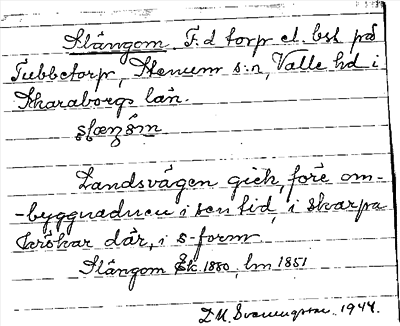 Slängom. F.d torp el. bst på
Tubbetorp, Stenum s:n, Valle hd i
Skaraborgs län.
Landsvägen gick, före om-
-byggnaden i sen tid, i skarpa
krökar där, i s-form.
Slängom Ek. 1880, lm 1851
1944.